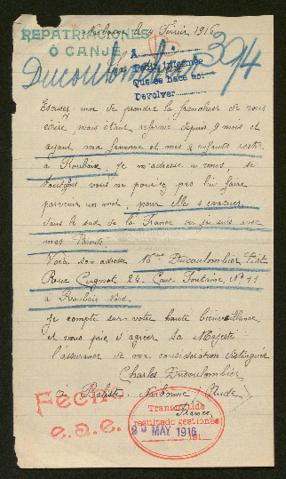 Narbonne le 4 Février 1916
REPATRIACIONES
O CANJE
A
394
Ducoulombier
Que se hace así:
Devolver
Excusez moi de prendre la franchise de vous
écrire mais étant réformé depuis 9 mois et
ayant ma femme et mes 2 enfants restés
à Roubaix je m'adresse à vous, si
toutefois vous ne pouviez pas lui faire
parvenir un mot, pour elle s'évacuer
dans le sud de la France ou je suis avec
mes Parents.
Voici son adresse Mme Ducoulombier
Rue Cugnot 24. Cour Fontaine No 11
à Roubaix Nord.
Je compte sur votre haute bienveillance
et vous prie d'agréer la Majesté
l'assurance de ma considération distinguée
Charles Ducoulombier
Narbonne (Aude)
France
FECHA
e.a.e.
Transmitido
resultado gestiones
20 MAY 1916